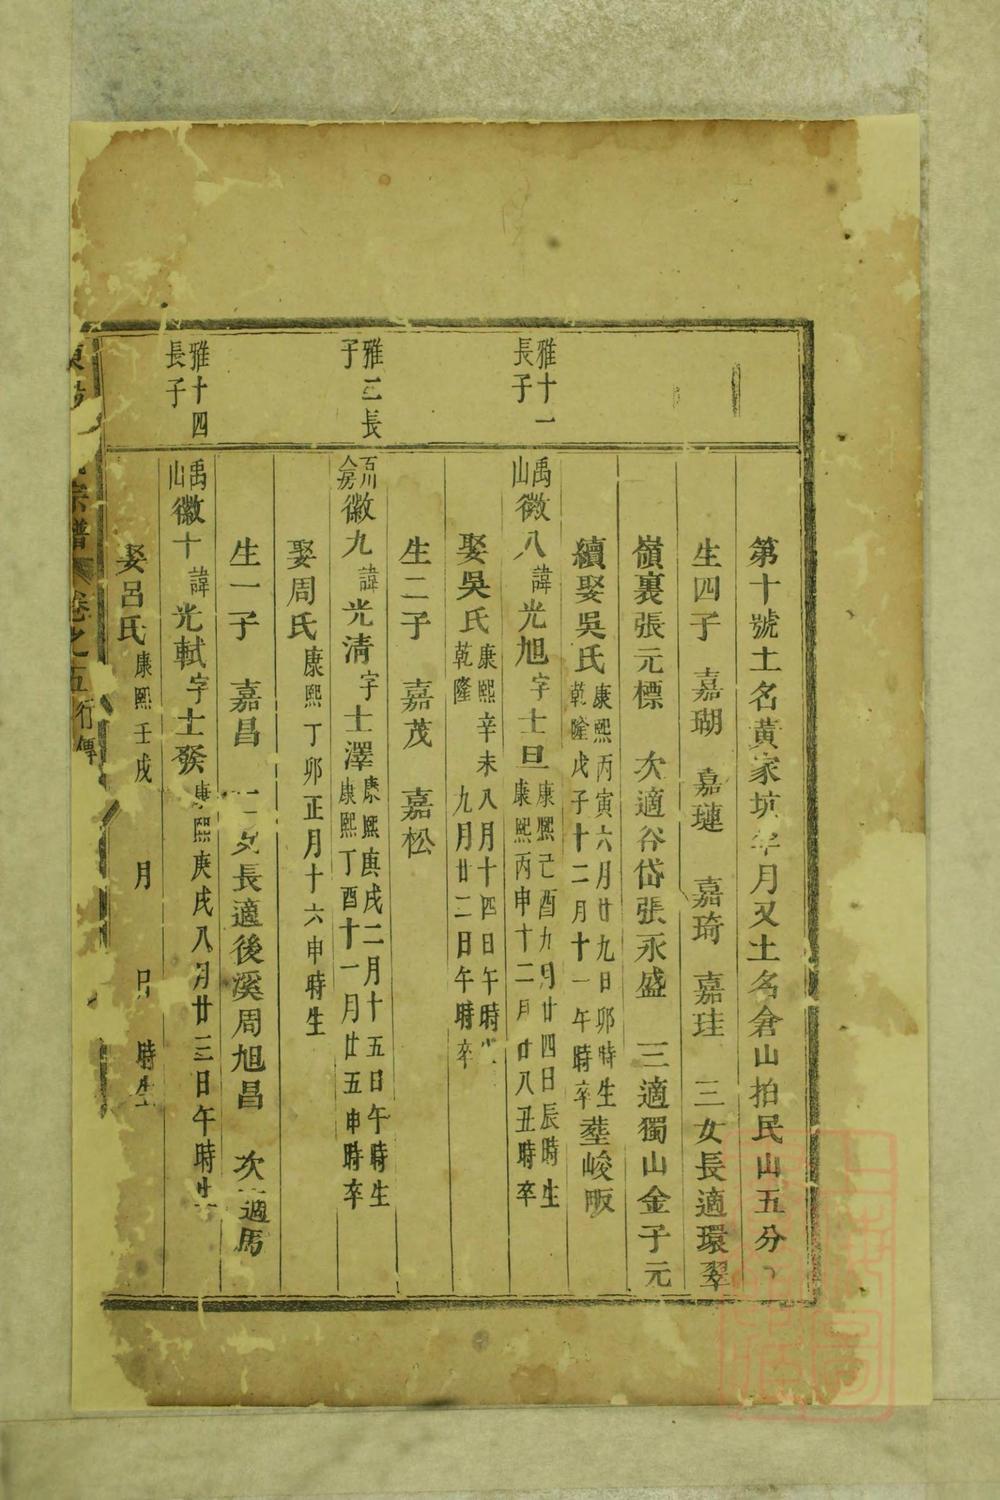 第十號土名黃家坑年月又土名倉山拍民山五分
生四子 嘉瑚 嘉璉 嘉琦 嘉珪 三女長適環翠
嶺裏張元標 次適谷岱張永盛 三適獨山金子元
續娶吳氏康熙丙寅六月廿九日卯時生乾隆戊子十二月十一午時卒塟峻畈
雅十一長子
禹山徽八諱光旭字士旦康熙己酉九月廿四日辰時生康熙丙申十二月廿八丑時卒
娶吳氏康熙辛未八月十四日午時乾隆九月廿二日午時卒
生二子 嘉茂 嘉松
雅三長子
徽九諱光清字士澤康熙庚戌二月十五日午時生康熙丁酉十一月廿五申時卒
娶周氏康熙丁卯正月十六申時生
生一子 嘉昌 二女長適後溪周旭昌 次適馬
雅十四長子
禹山徽十諱光軾字士發康熙庚戌八月廿三日午時生
娶呂氏康熙壬戌 月 日 時生
宗譜 卷之五行傳